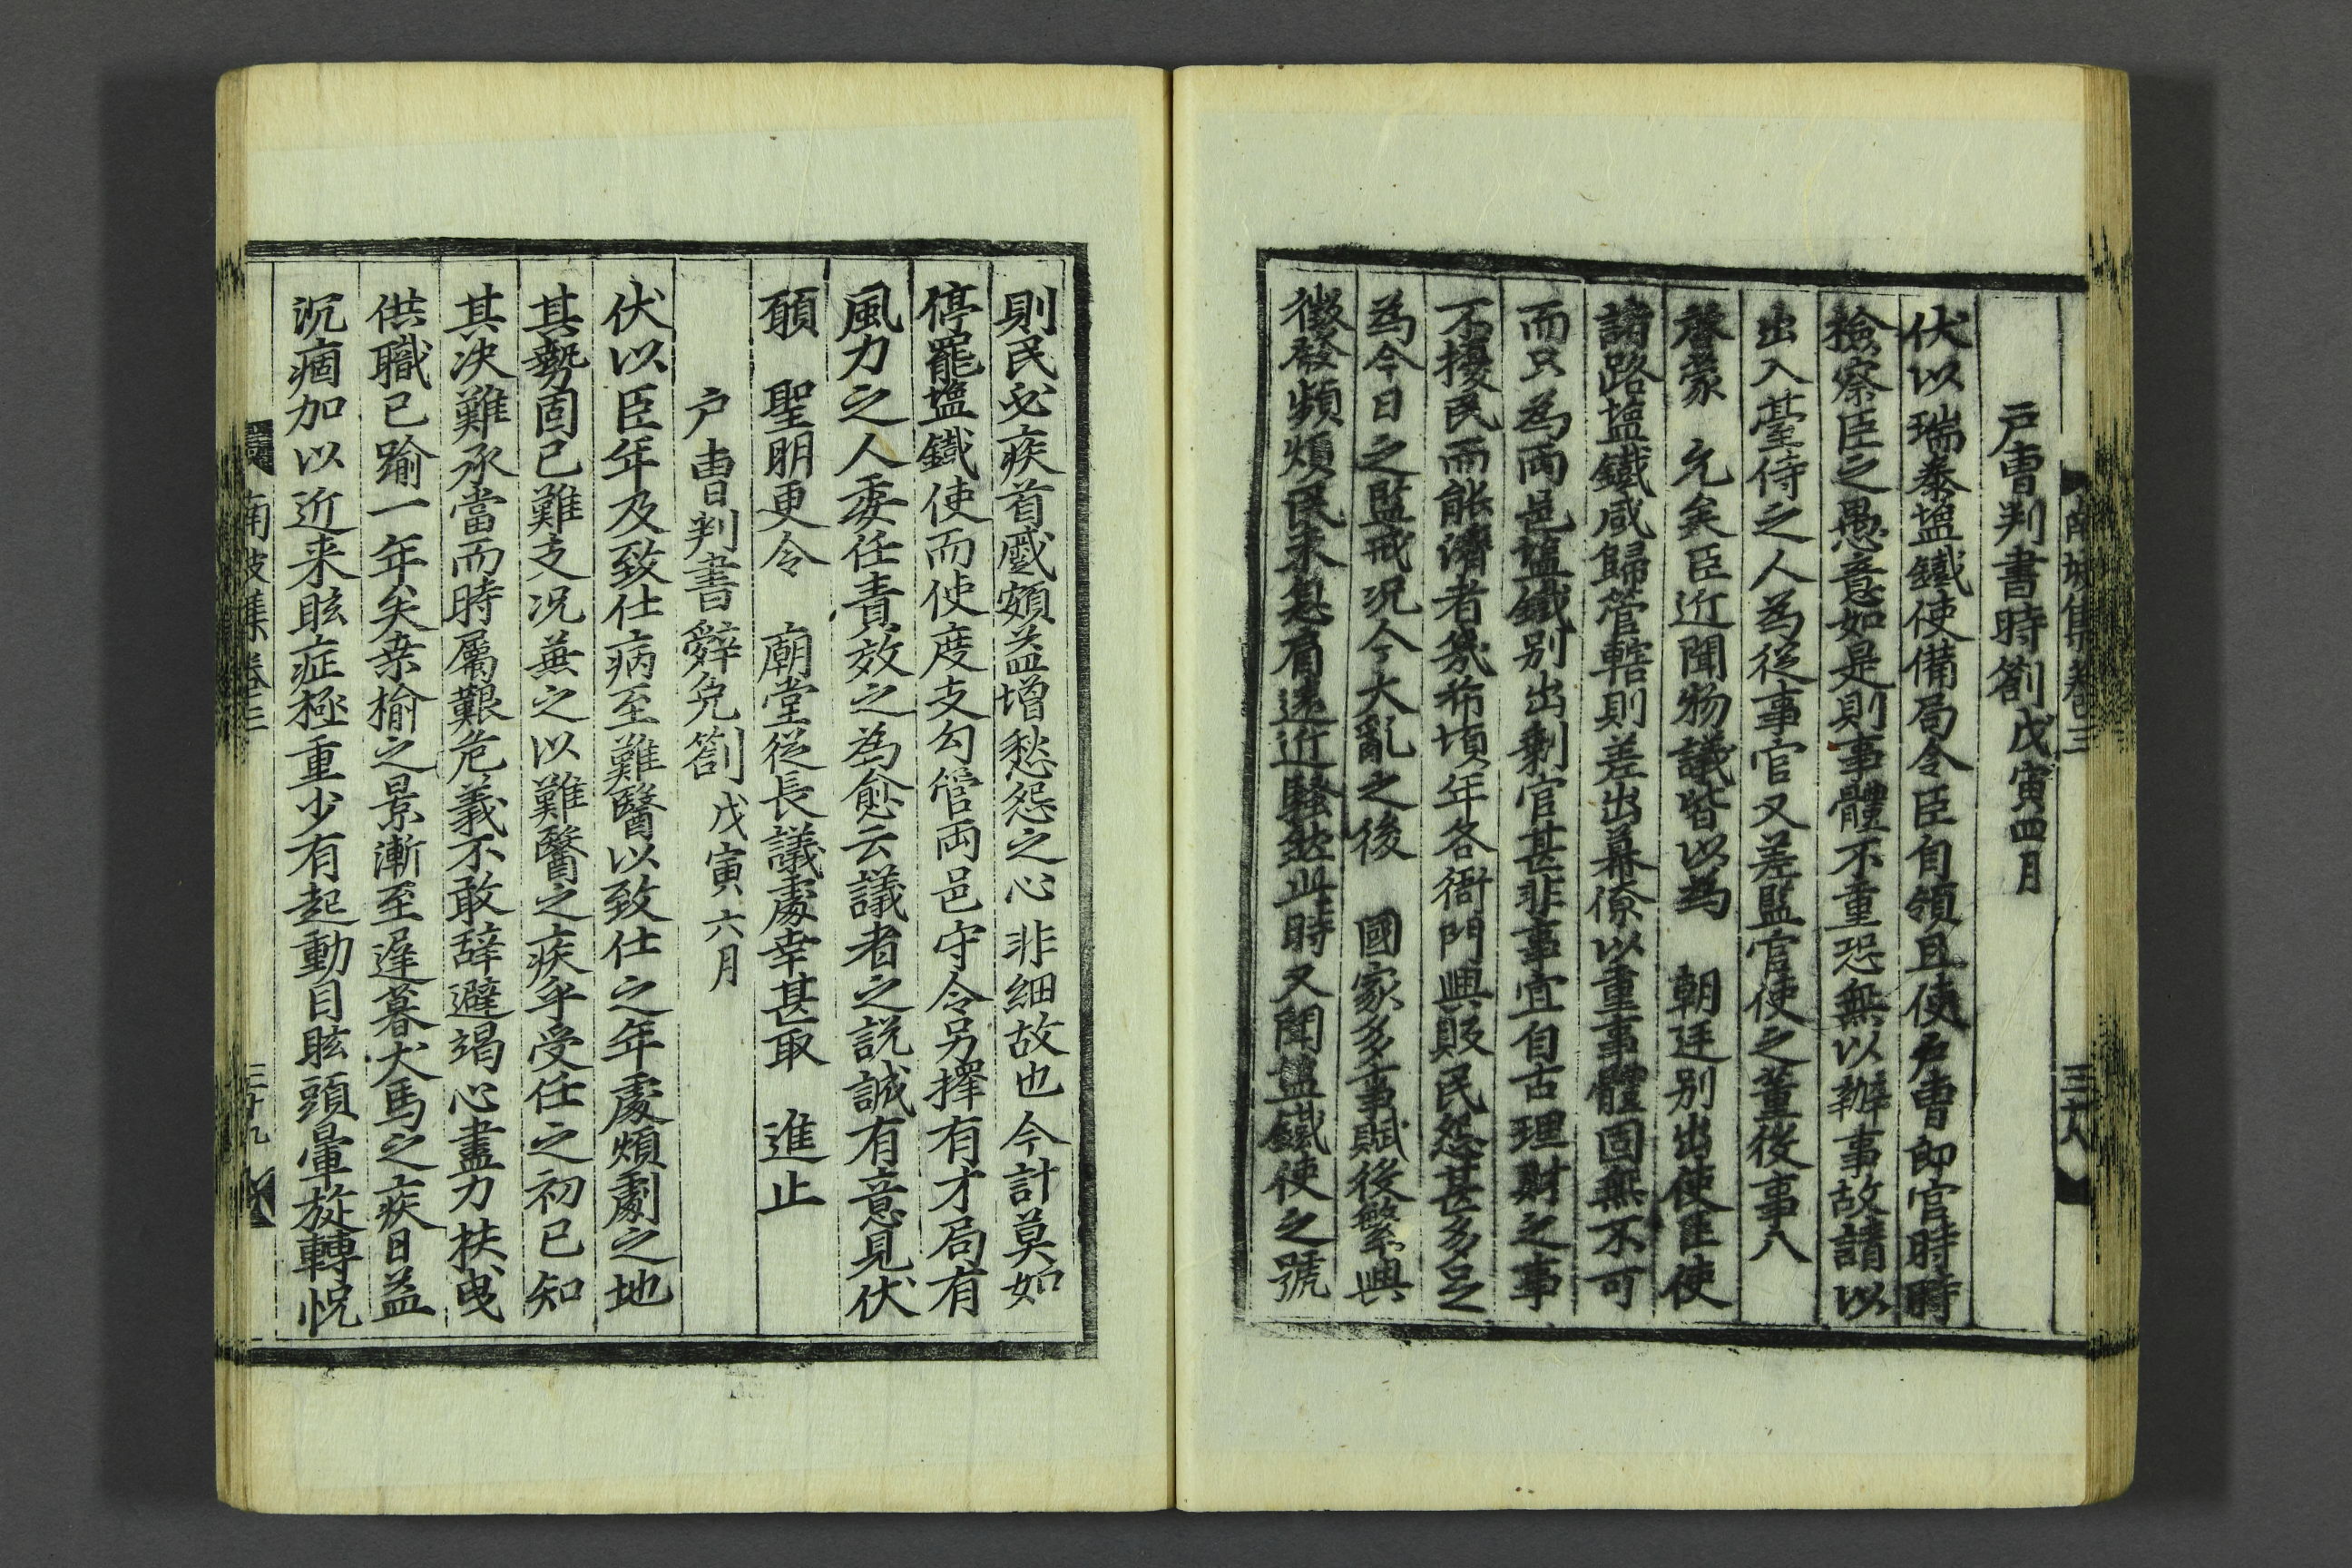 南坡集卷三
三十八
戶曹判書時劄 戊寅四月
伏以瑞泰塩鐵使備局令臣自領且使戶曹郎官時時
檢察臣之愚意如是則事體不重恐無以辦事故請以
出入臺侍之人為從事官又差監官使之董役事入
啓蒙 允矣臣近聞物議皆以為 朝廷别出使臣使
諸路塩鐵咸歸管轄則差出幕僚以重事體固無不可
而只為兩邑塩鐵别出剩官甚非事宜自古理財之事
不擾民而能濟者幾希頃年各衙門興販民怨甚多足
為今日之監戒况今大亂之後 國家多事賦役繁興
徵發頻煩民未息肩遠近騷然此時又聞塩鐵使之號
則民必疾首蹙頞益增愁怨之心非細故也今計莫如
停罷塩鐵使而使度支勾管兩邑守令另擇有才局有
風力之人委任責效之為愈云議者之説誠有意見伏
願 聖明更令 廟堂從長議處幸甚取 進止
户曹判書辭免劄 戊寅六月
伏以臣年及致仕病至難醫以致仕之年處煩劇之地
其勢固已難支况兼之以難醫之疾乎受任之初已知
其决難承當而時屬艱危義不敢辞避竭心盡力扶曳
供職已踰一年矣桒榆之景漸至遅暮犬馬之疾日益
沉痼加以近来眩症極重少有起動目眩頭暈旋轉怳
南坡集卷三
三十九